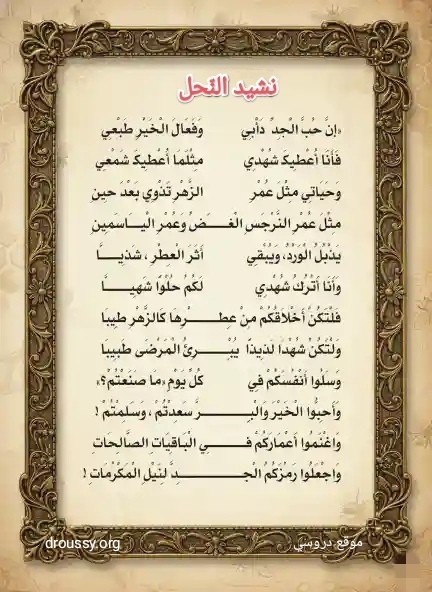 نشيد النّحل
«إنَّ حُبَّ الْجِدِّ دَأْبِي وَفَعَالَ الْخَيْرِ طَبْعِي
فَأَنَا أُعْطِيكَ شُهْدِي مِثْلَمَا أُعْطِيكَ شَمْعِي
وَحَيَاتِي مِثْلُ عُمْرِ الزَّهْرِ تَذْوِي بَعْدَ حين
مِثْلَ عُمْرِ النَّرْجَسِ الْغَـــضُ وَعُمْرِ الْيـــاسَمِين
يَذْبُلُ الْوَرْدُ، وَيُبْقِي أَثَرَ الْعِطْرِ ، شَذيـــا
وَأَنَا أَتْرُكُ شُهْدِي لَكُمُ حُلْوًا شَهِيـــا
فَلْتَكُنْ أَخْلَاقُكُمْ مِنْ عِطْـــرِهَا كَالزَّهْرِ طِيبَا
وَلْتَكُنْ شُهْدًا لَذِيذًا يُبْـــرِئُ الْمَرْضَى طَبِيبَا
وَسَلُوا أَنْفُسَكُمْ فِي كُلِّ يَوْمٍ «مَا صَنَعْتُمْ؟»
وَأَحِبُّوا الْخَيْرَ وَالْبِـــرَّ سَعِدْتُمْ ، وَسَلِمْتُمْ !
وَاغْنَمُوا أَعْمَارَكُمْ فـــي الْبَاقِيَاتِ الصَّالِحَاتِ
وَاجْعَلُوا رَمْزَكُمُ الْجِـــدَّ لِنَيْلِ الْمَكْرُمَاتِ !
موقع دروسي
droussy.org